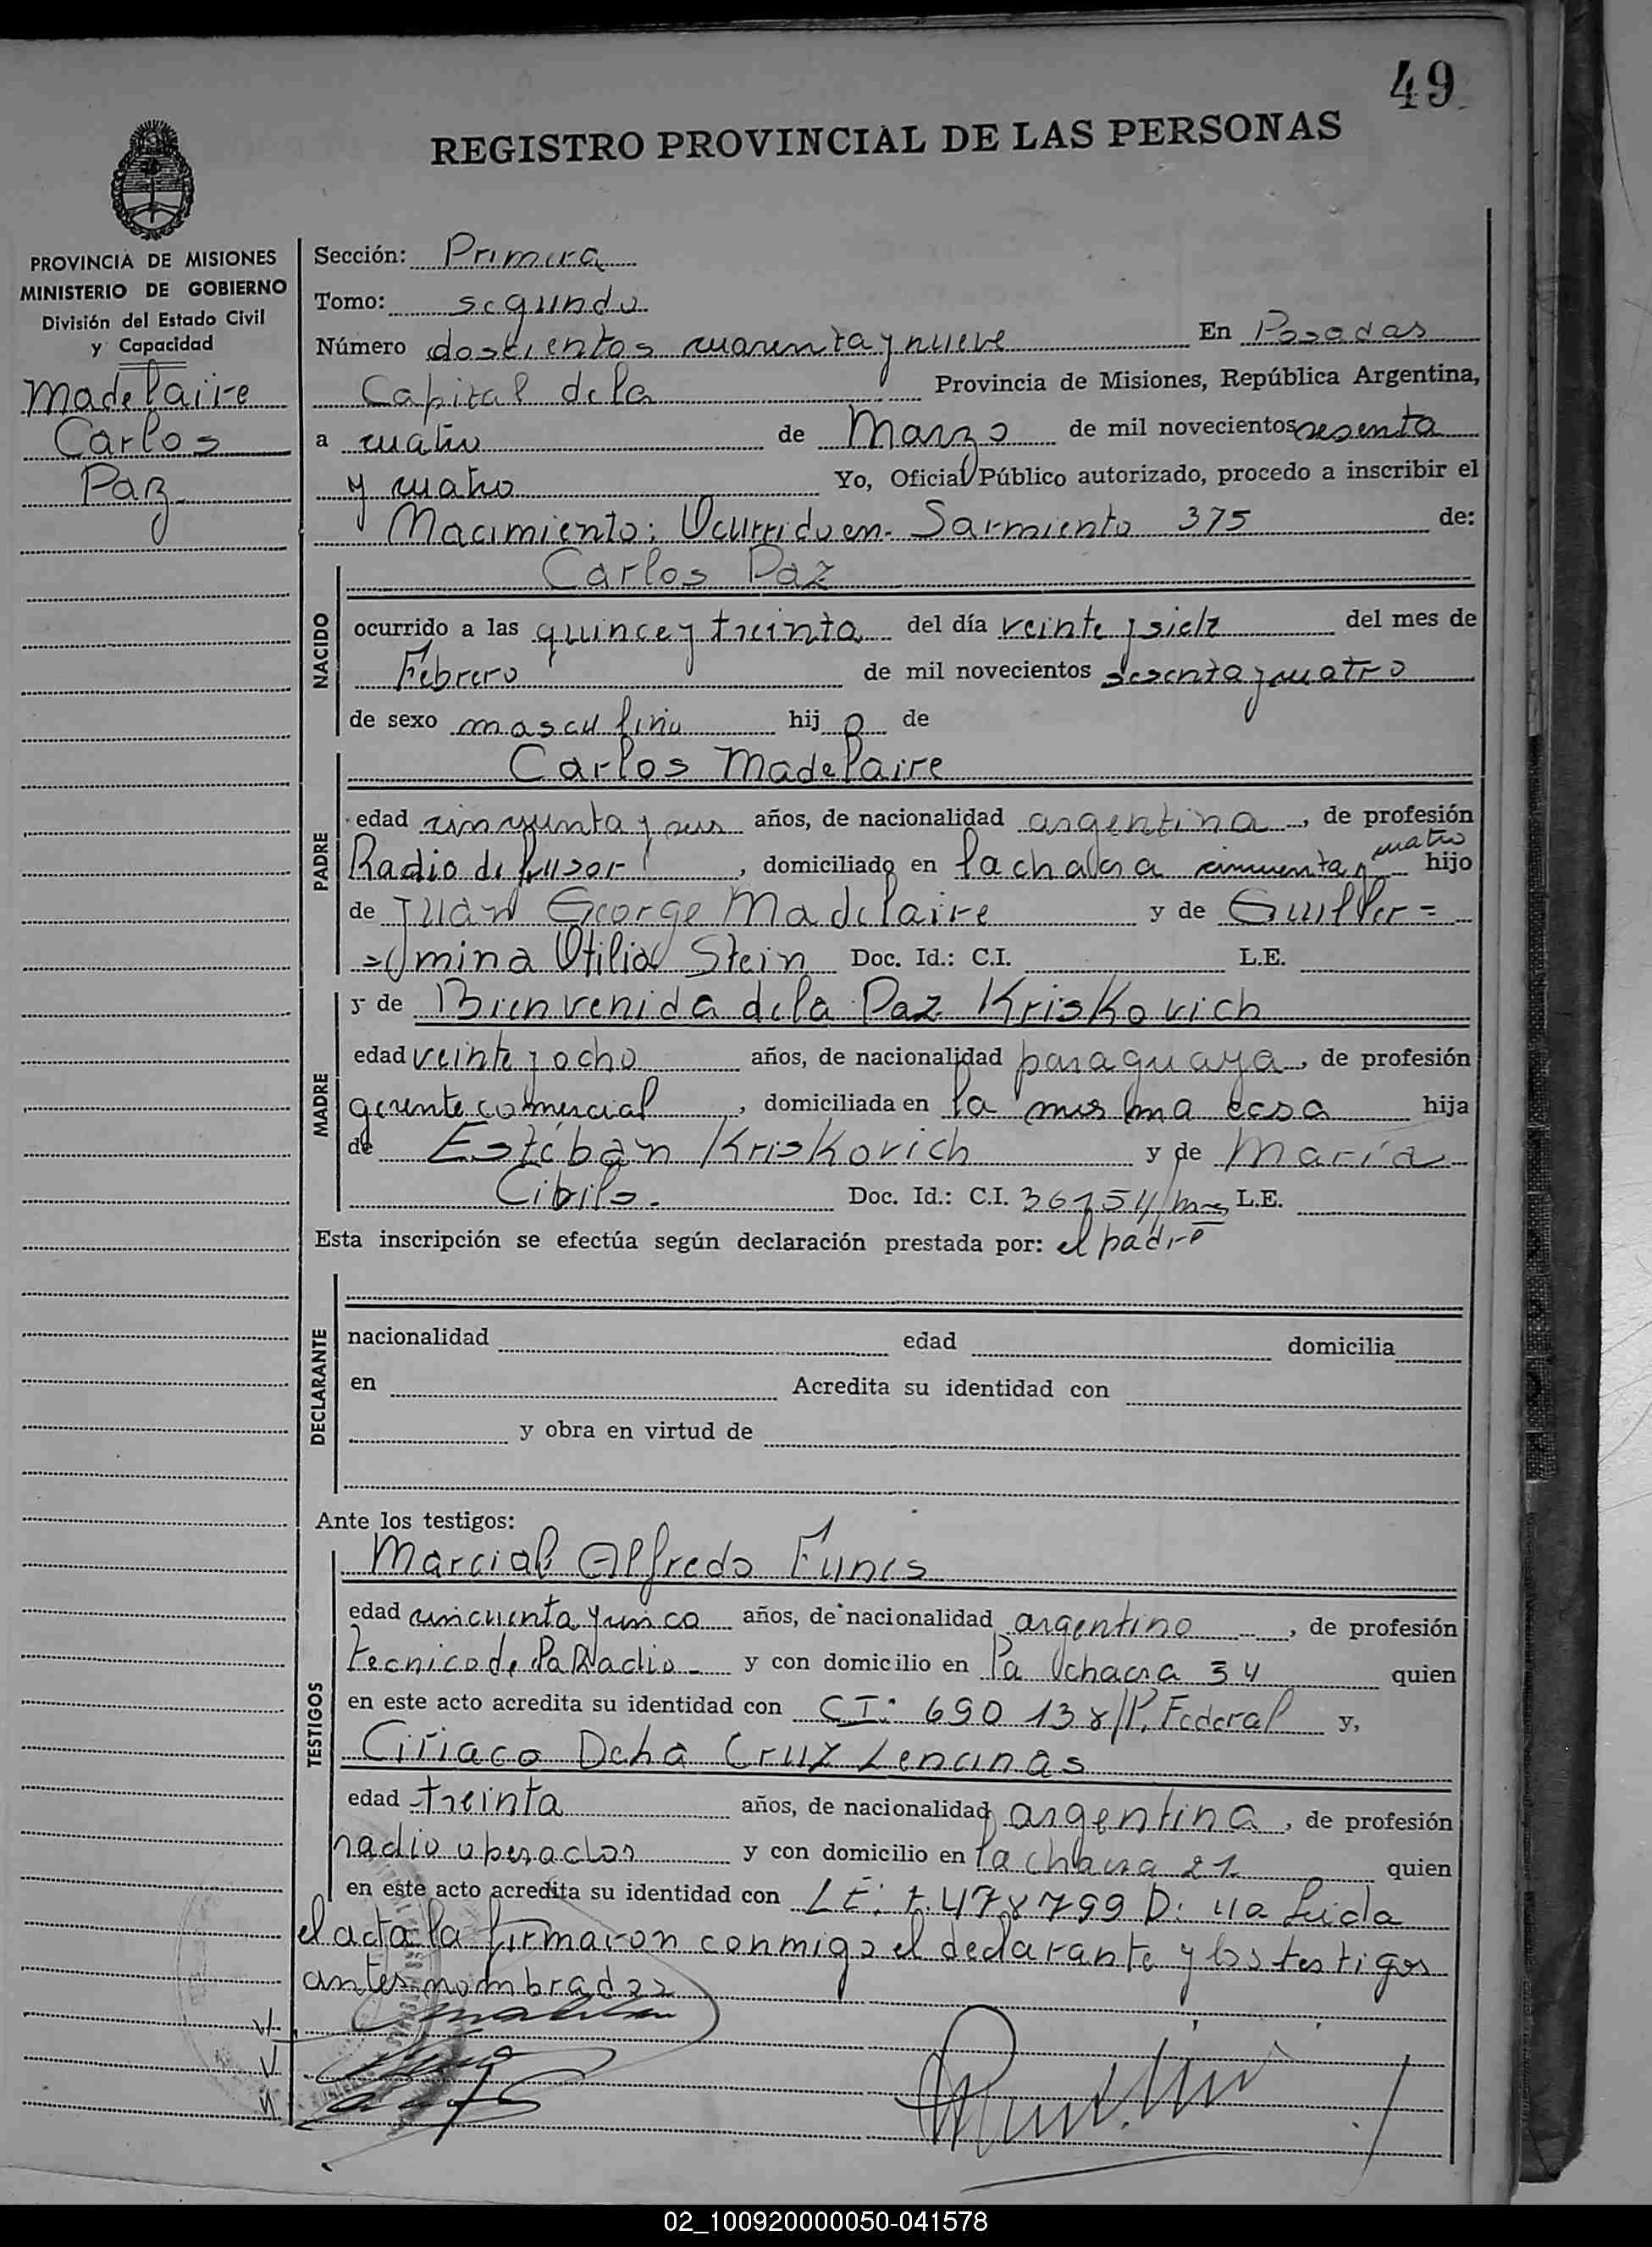 49
REGISTRO PROVINCIAL DE LAS PERSONAS
PROVINCIA DE MISIONES
MINISTERIO DE GOBIERNO
División del Estado Civil
y Capacidad
Madelaire
Carlos
Paz
Sección: Primera
Tomo: segundo
Número doscientos cuarenta y nueve En Posadas
Capital de la Provincia de Misiones, República Argentina,
a cuatro de Marzo de mil novecientos sesenta
y cuatro Yo, Oficial Público autorizado, procedo a inscribir el
Nacimiento: Ocurrido en Sarmiento 375 de:
NACIDO
Carlos Paz
ocurrido a las quince y treinta del día veinte y siete del mes de
Febrero de mil novecientos sesenta y cuatro
de sexo masculino hijo de
PADRE
Carlos Madelaire
edad cincuenta y seis años, de nacionalidad argentina, de profesión
Radio difusor, domiciliado en la chacra cincuenta y cuatro hijo
de Juan George Madelaire y de Guiller=
=mina Otilia Stein Doc. Id.: C.I. L.E.
MADRE
y de Bienvenida de la Paz Kriskovich
edad veinte y ocho años, de nacionalidad paraguaya, de profesión
gerente comercial, domiciliada en la misma casa hija
de Estéban Kriskovich y de María
Cibils. Doc. Id.: C.I. L.E.
Esta inscripción se efectúa según declaración prestada por: el padre
DECLARANTE
nacionalidad edad domicilia
en Acredita su identidad con
y obra en virtud de
Ante los testigos:
TESTIGOS
Marcial Alfredo Funes
edad cincuenta y cinco años, de nacionalidad argentino, de profesión
Tecnico de la Radio y con domicilio en la chacra 54 quien
en este acto acredita su identidad con CI: 690 138/P. Federal y,
Ciriaco De la Cruz Lencinas
edad treinta años, de nacionalidad argentina, de profesión
radio operador y con domicilio en la chacra 21 quien
en este acto acredita su identidad con LE: 7.478799 Leida
el acta la firmaron conmigo el declarante y los testigos
antes nombrados
02_100920000050-041578